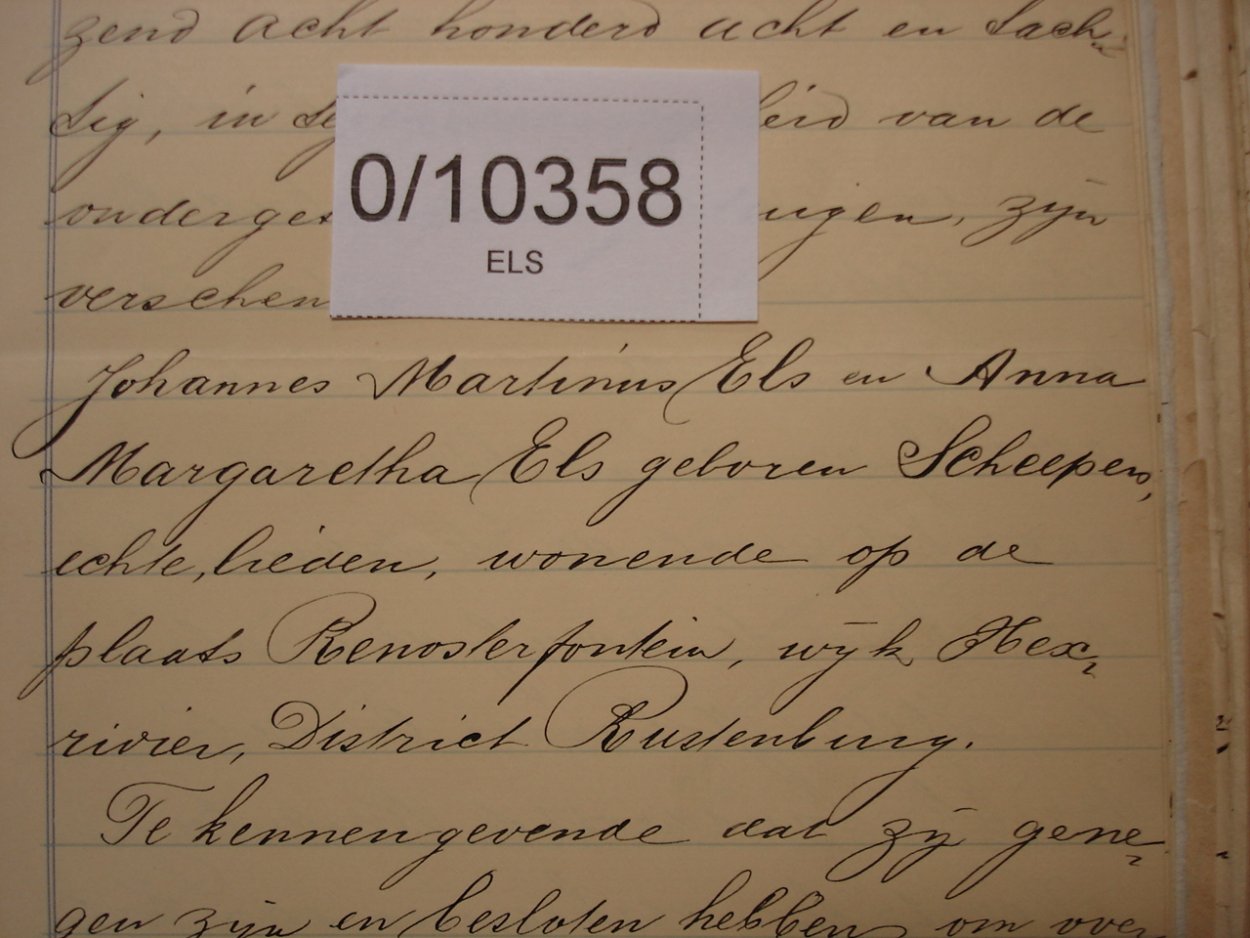 zend acht honderd acht en tach-
tig, in te eid van de
onderget ugen, zijn
verschen
0/10358
ELS
Johannes Martinus Els en Anna
Margaretha Els geboren Scheepers,
echte, lieden, wonende op de
plaats Renosterfontein, wijk Hex-
rivier, District Rustenburg.
Te kennen gevende dat zij gene-
gen zijn en besloten hebben om over